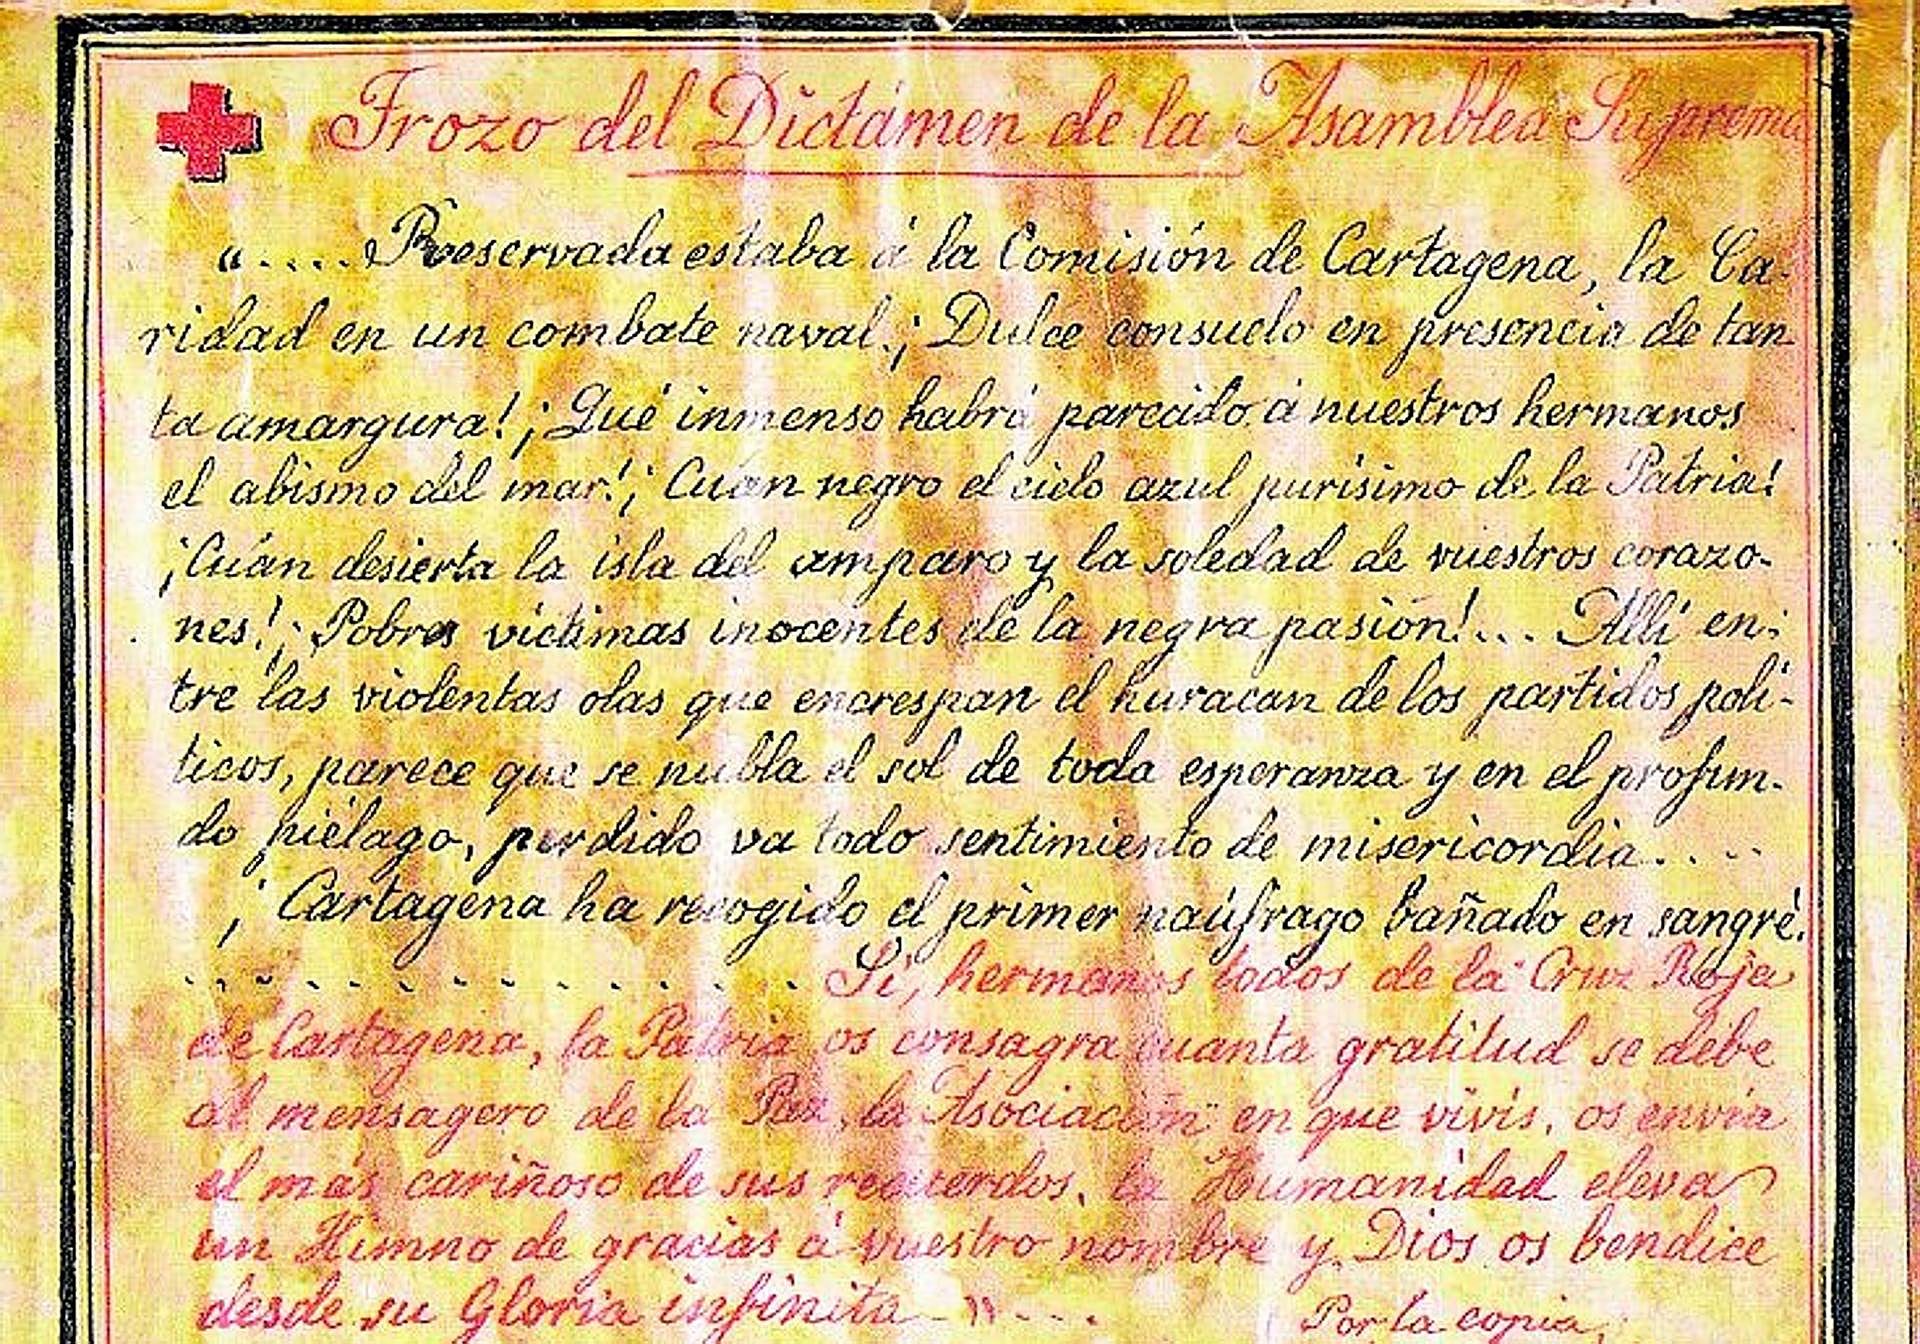 Trozo del Dictámen de la Asamblea Suprema
".... Reservada estaba á la Comisión de Cartagena, la Ca-
ridad en un combate naval. ¡Dulce consuelo en presencia de tan
ta amargura! ¡Qué inmenso habrá parecido á nuestros hermanos
el abismo del mar! ¡Cuán negro el cielo azul purísimo de la Patria!
¡Cuán desierta la isla del amparo y la soledad de vuestros corazo-
nes! ¡Pobres víctimas inocentes de la negra pasión!... Allí en-
tre las violentas olas que encrespan el huracan de los partidos polí-
ticos, parece que se nubla el sol de toda esperanza y en el profun-
do piélago, perdido va todo sentimiento de misericordia....
¡Cartagena ha recogido el primer naúfrago bañado en sangre!
.............. Si, hermanos todos de la Cruz Roja
de Cartagena, la Patria os consagra cuanta gratitud se debe
al mensagero de la Paz, la Asociación en que vivís, os envía
el más cariñoso de sus recuerdos, la Humanidad eleva
un Himno de gracias á vuestro nombre y Dios os bendice
desde su Gloria infinita" ....
Por la copia,